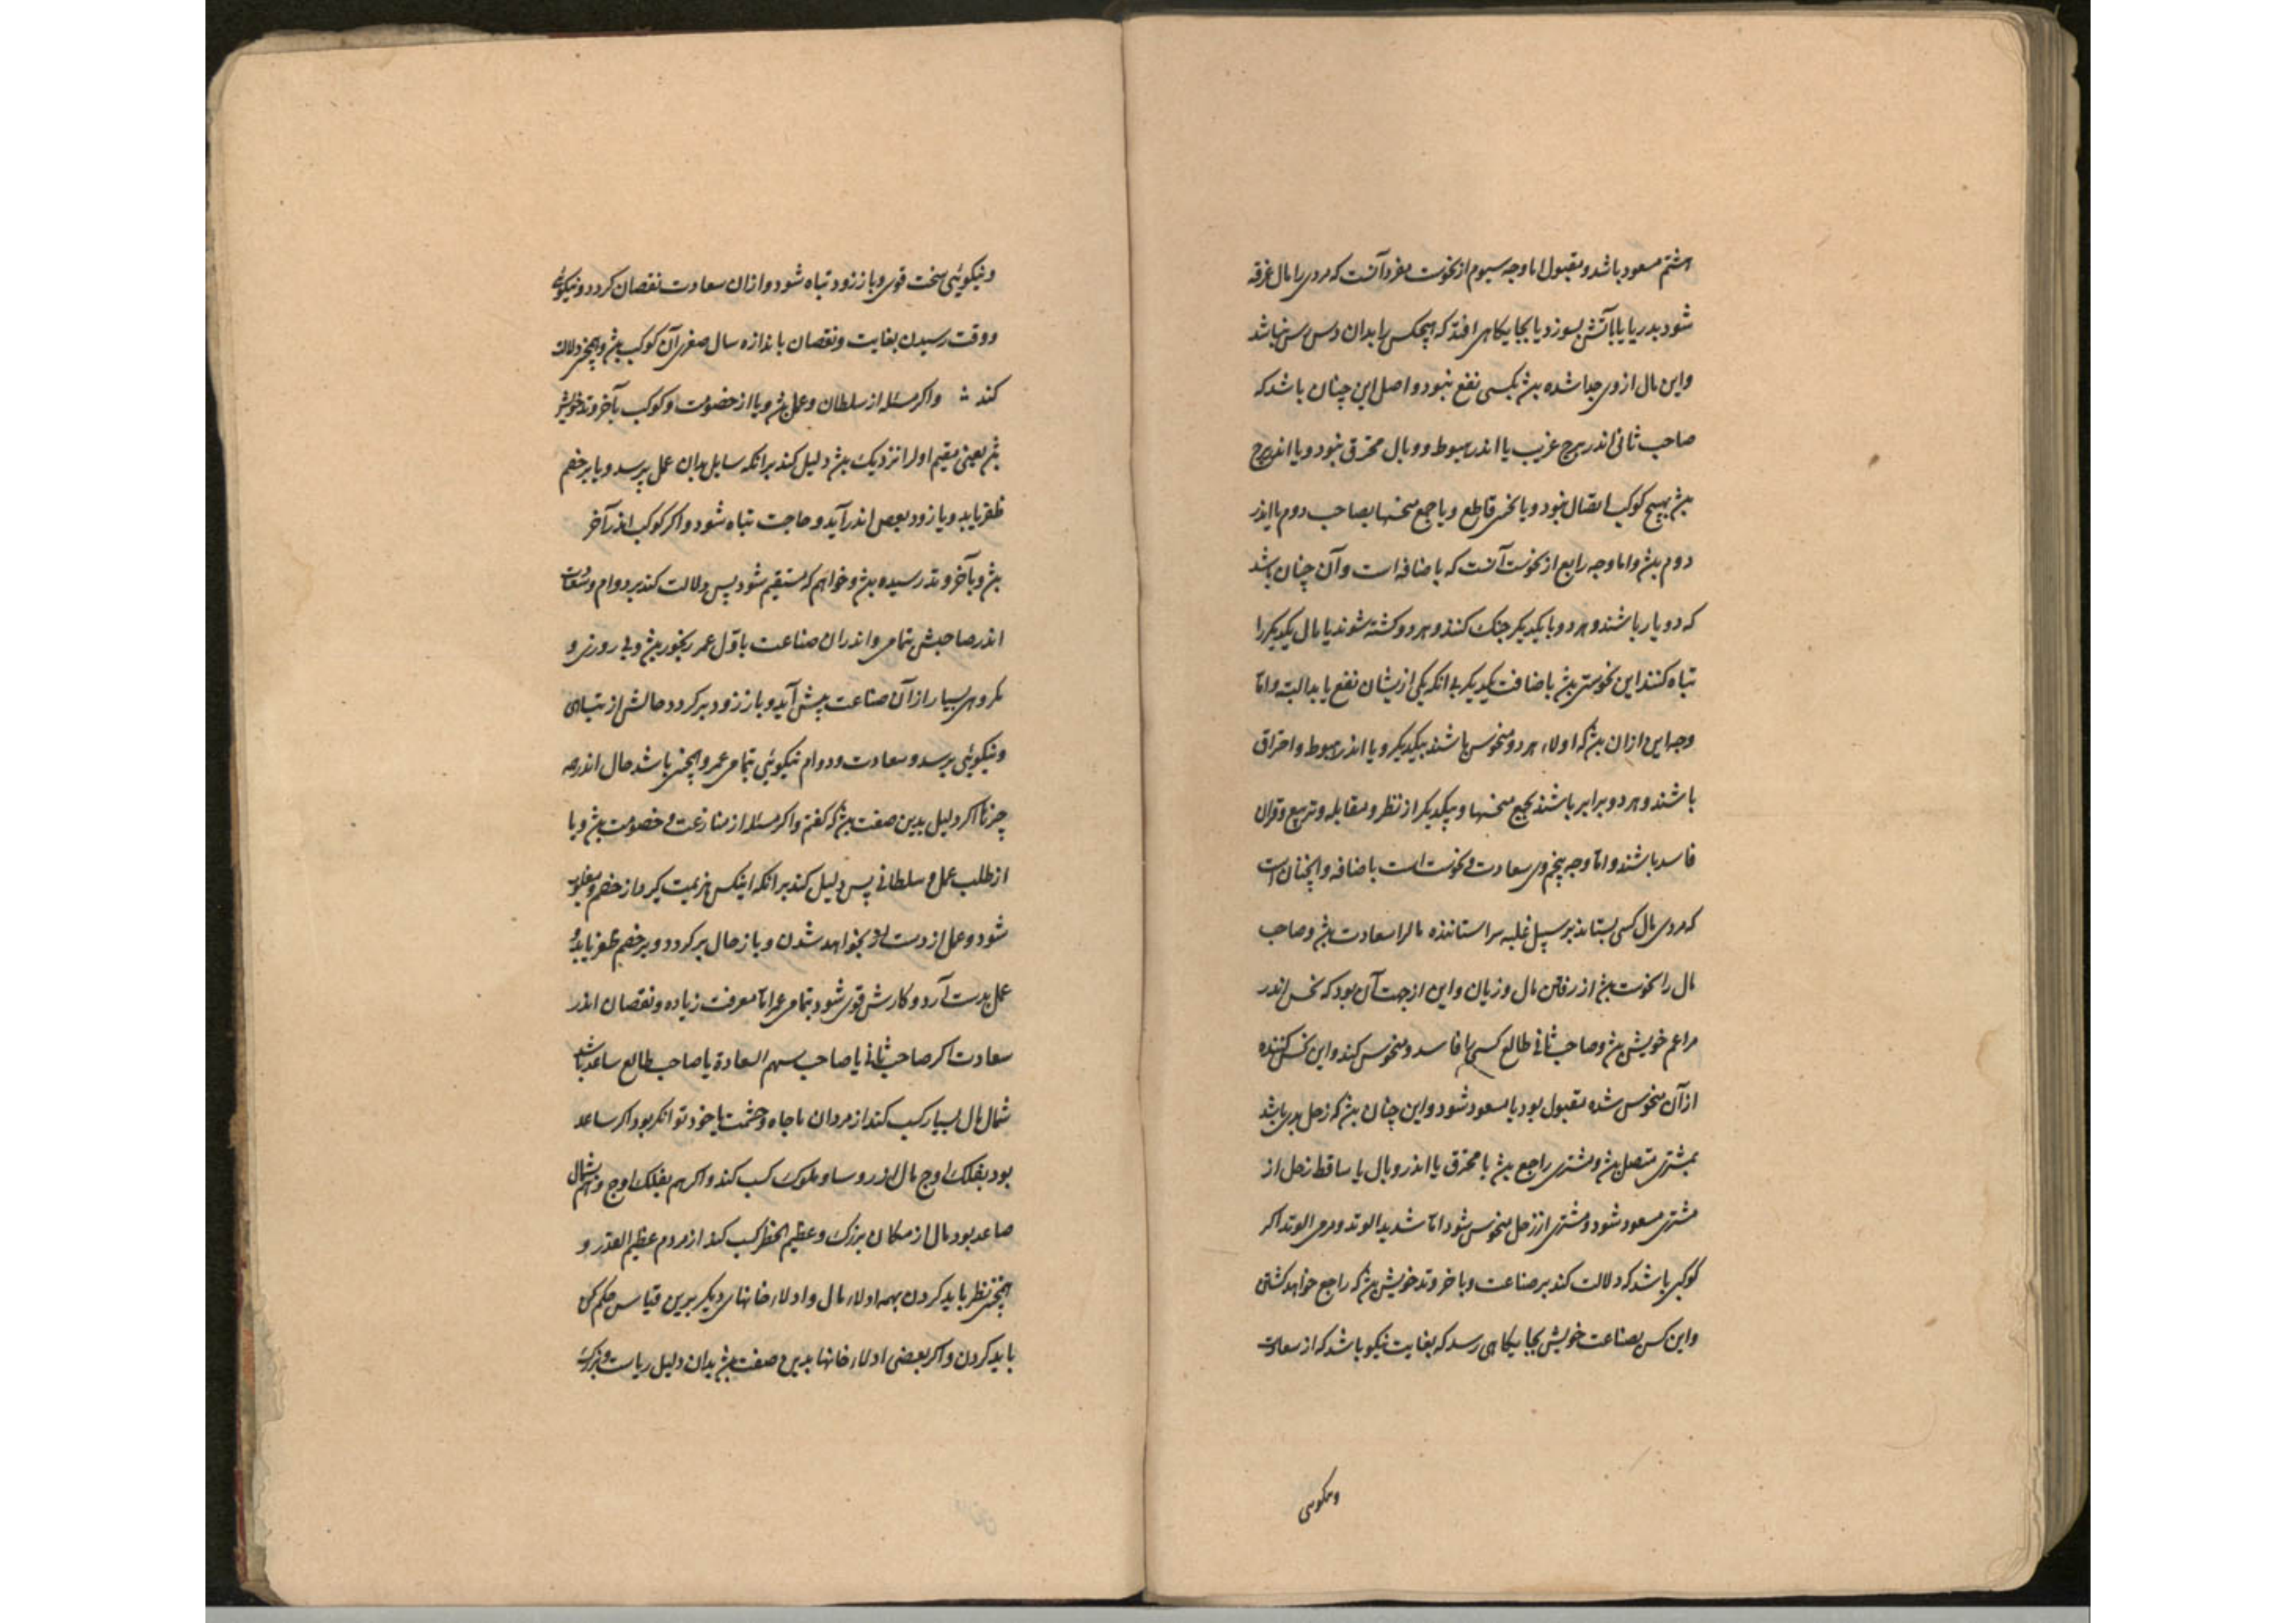 هشتم مسعود باشد و مقبول اما وجه سیوم از نحوست مفرد آنست که مردی را مال غرقه
شود بدریا یا بآتش بسوزد یا بجایکاهی افتد که هیچکس را بدان دست رس نباشد
واین مال از وی جدا شده بکسی نفع نبود و اصل این چنان باشد که
صاحب ثانی اندر برج غریب یا اندر هبوط و وبال محترق نبود ویا اندر برج
بهیچ کوکب اتصال نبود ویا نحس قاطع ویا جمع منحسها بصاحب دوم یا اندر
دوم واما وجه رابع از نحوست آنست که باضافه است وآن چنان باشد
که دو یار باشند و هر دو با یکدیکر جنک کنند و هر دو کشته شوند یا مال یکدیکر را
تباه کنند این نحوستی باضافت یکدیکر بی انکه یکی ازیشان نفع یابد البته واما
وجه این ازان که اولاء هر دو منحوس باشند بیکدیکر ویا اندر هبوط و احتراق
باشند و هر دو برابر باشند بجمع منحسها و بیکدیکر از نظر و مقابله و تربیع و قران
فاسد باشند واما وجه پنجم وی سعادت و نحوست است باضافه و اینچنان است
که مردی مال کسی بستاند بر سبیل غلبه مر استاننده مال را سعادت و صاحب
مال را نحوست از رفتن مال و زیان واین از جهت آن بود که نحس اندر
مزاعم خویش و صاحب ثانی طالع کسی را فاسد و منحوس کند واین نحس کننده
از آن منحوس شده مقبول بود یا مسعود شود واین چنان که زحل بدی باشد
بمشتری متصل و مشتری راجع یا محترق یا اندر وبال یا ساقط زحل از
مشتری مسعود شود و مشتری از زحل منحوس شود اما شدید الوتد و مرمی الوتد اکر
کوکبی باشد که دلالت کند بر صناعت و باخر وتد خویش که راجع خواهد کشتن
واین کس بصناعت خویش بجایکاهی رسد که بغایت نیکو باشد که از سعادت
ونیکویی
ونیکوئی سخت قوی و باز زود تباه شود و ازان سعادت نقصان کردد و نیکوئی
ووقت رسیدن بغایت ونقصان باندازه سال صغری آن کوکب وهمچنین دلالت
کند واکر مسئله از سلطان وعمل ویا از خصومت و کوکب بآخر وتد خویش
یعنی مقیم اول را نزدیک دلیل کند برانکه سایل بدان عمل برسد ویا بر خصم
ظفر یابد ویا زود بعمل اندر آید و حاجت تباه شود واکر کوکب اندر آخر
وبآخر وتد رسیده وخواهم که مستقیم شود پس دلالت کند بر دوام وسعادت
اندر صاحبش تمامی واندران صناعت باول عمر رنجور وبی روزی و
مکروهی بسیار از آن صناعت پیش آید و باز زود برکردد حالش از تباهی
ونیکوئی برسد وسعادت ودوام نیکوئی بتمامی عمر وهمچنین باشد حال اندر همه
چیزها اکر دلیل بدین صفت که کفتم واکر مسئله از منازعت و خصومت ویا
از طلب عمل و سلطانی پس دلیل کند برانکه اینکس هزیمت کیرد از خصم و مغلوب
شود وعمل از دست او بخواهد شدن و باز حال برکردد و بر خصم ظفر یابد و
عمل بدست آرد و کارش قوی شود بتمامی عمر اما معرفت زیاده و نقصان اندر
سعادت اکر صاحب ثانی یا صاحب سهم السعادة یا صاحب طالع صاعد باشد
شمال مال بسیار کسب کند از مردان با جاه وحشمت یا خود توانکر بود اکر صاعد
بود بفلک اوج مال از روسا و ملوک کسب کند واکر هم بفلک اوج و هم بشمال
صاعد بود مال از مکان بزرک و عظیم الخطر کسب کند از مردم عظیم القدر و
همچنین نظر باید کردن بهمه اولاء مال و اولاء خانهای دیکر برین قیاس حکم کن
باید کردن واکر بعضی اولاء خانها بدین صفت بدان دلیل ریاست و بزرک